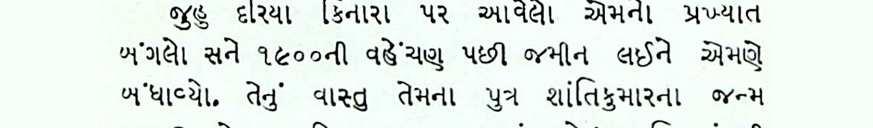 જુહુ દરિયા કિનારા પર આવેલો એમનો પ્રખ્યાત
બંગલો સને ૧૯૦૦ની વહેંચણ પછી જમીન લઈને એમણે
બંધાવ્યો. તેનું વાસ્તુ તેમના પુત્ર શાંતિકુમારના જન્મ